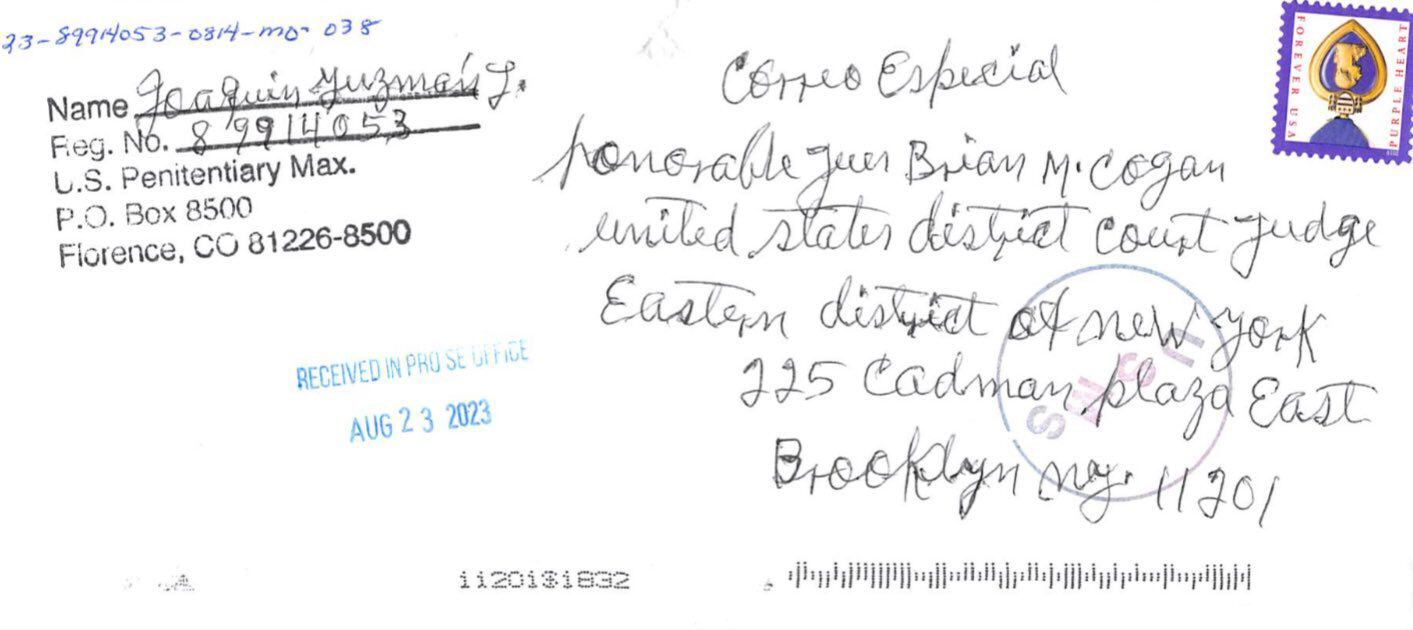 23-89914053-0814-mo-038
Name Joaquin Guzmán L.
Reg. No. 89914053
U.S. Penitentiary Max.
P.O. Box 8500
Florence, CO 81226-8500
Correo Especial
honorable juez Brian M. Cogan
united states district court judge
Eastern district of new york
225 Cadman plaza East
Brooklyn ny. 11201
FOREVER USA
PURPLE HEART
RECEIVED IN PRO SE OFFICE
AUG 23 2023
11201$1832